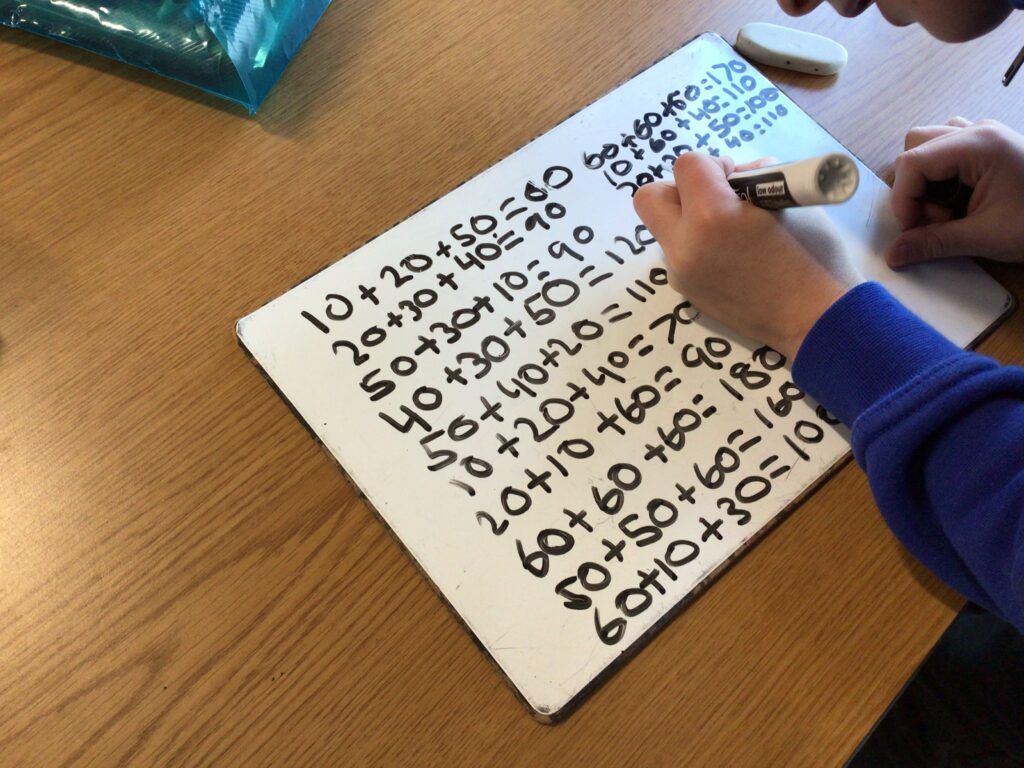 10 + 20 + 50 = 80
20 + 30 + 40 = 90
50 + 30 + 10 = 90
40 + 30 + 50 = 120
50 + 40 + 20 = 110
10 + 20 + 40 = 70
20 + 10 + 60 = 90
60 + 60 + 60 = 180
50 + 50 + 60 = 160
60 + 10 + 30 = 100
60 + 60 + 50 = 170
10 + 60 + 40 = 110
20 + 30 + 50 = 100
+ 40 = 110
low odour